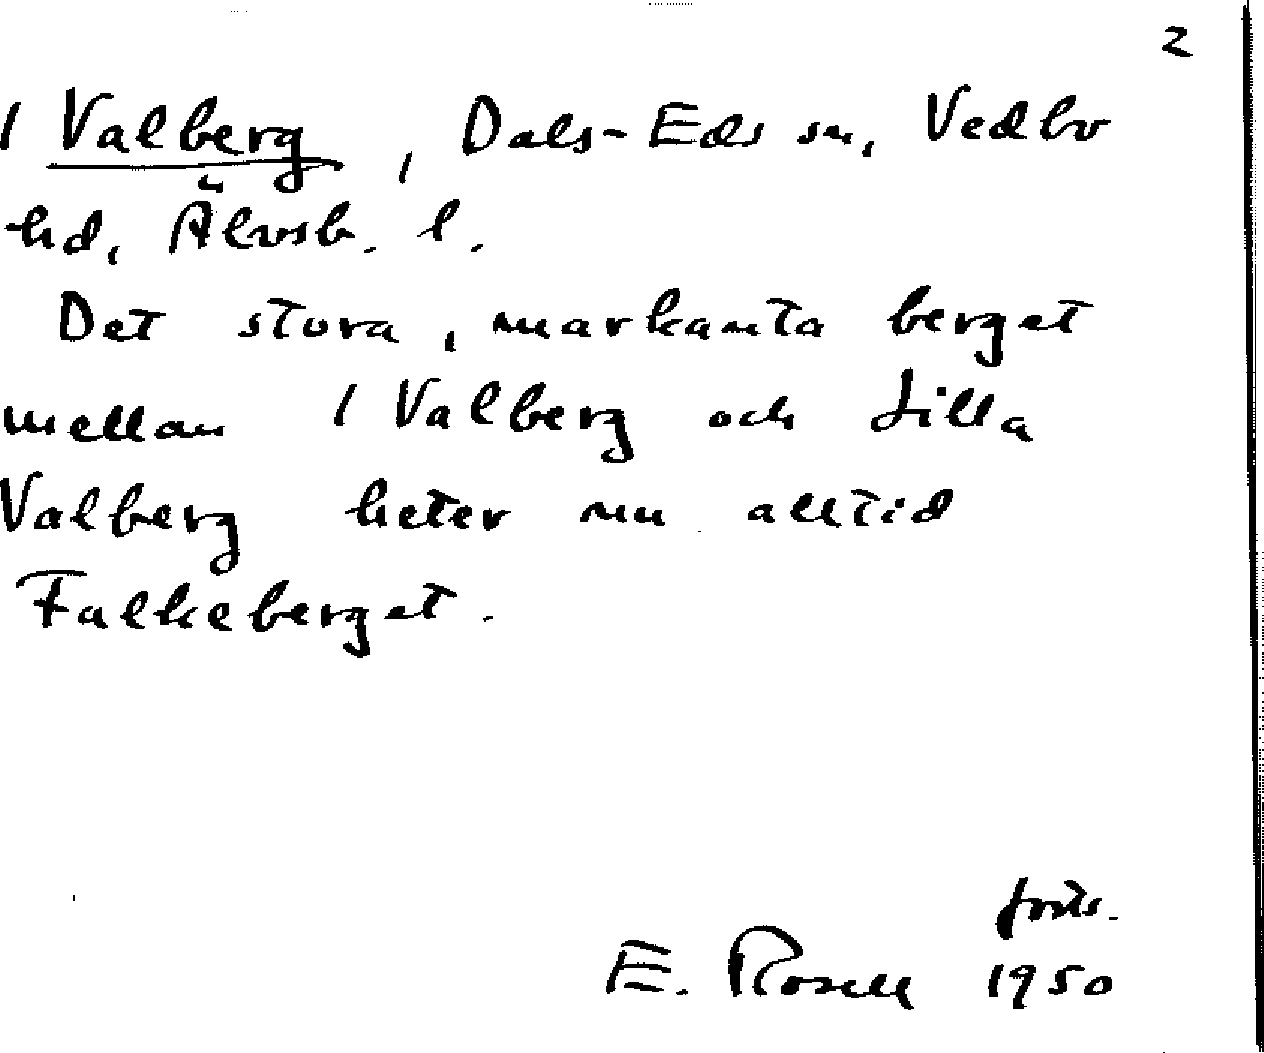 2
1 Valberg, Dals-Eds sn, Vedbo
hd, Älvsb. l.
Det stora, markanta berget
mellan 1 Valberg och Lilla
Valberg heter nu alltid
Falkeberget.
forts.
E. Rosell 1950